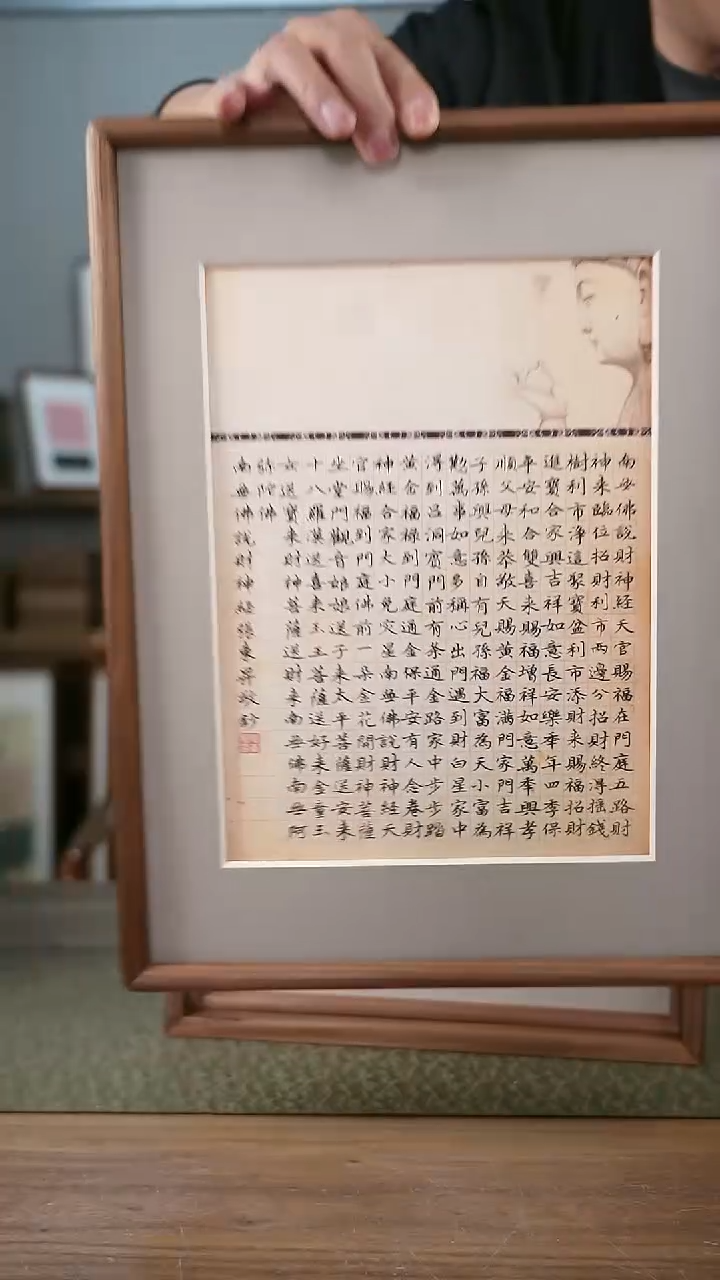 南無佛說財神經天官賜福在門庭五路財
神来臨位招財利市兩邊分招財終得摇錢
樹利市淨這聚寶盆利市添財来賜福招財
進寶合家興吉祥如意長安樂年四季保
年安和合雙喜来賜福增祥如意萬興孝
順父母来恭敬天賜黄金福滿門家門吉祥
子孫興兒孫自有兒孫福大富為天小富為
勤萬事如意多稱心出門遇到財白星家中
得到呂洞賓門前有茶通金路家中步步踏
黄金福禄到門庭通金保平安有人念卷財
神經合家大小免灾星南無佛說財神經天
官賜福到門庭佛前一朵金花開財神菩薩
坐堂門觀音娘娘送子来太平菩薩送安来
十八羅漢送喜来玉王菩薩送好来金童玉
女送寶来財神菩薩送財来南無佛南無阿
弥陀佛
南無佛說財神經張東昇敬抄